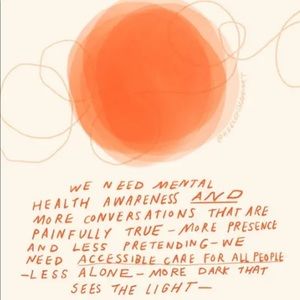 WE NEED MENTAL
HEALTH AWARENESS AND
MORE CONVERSATIONS THAT ARE
PAINFULLY TRUE - MORE PRESENCE
AND LESS PRETENDING - WE
NEED ACCESSIBLE CARE FOR ALL PEOPLE
- LESS ALONE - MORE DARK THAT
SEES THE LIGHT -